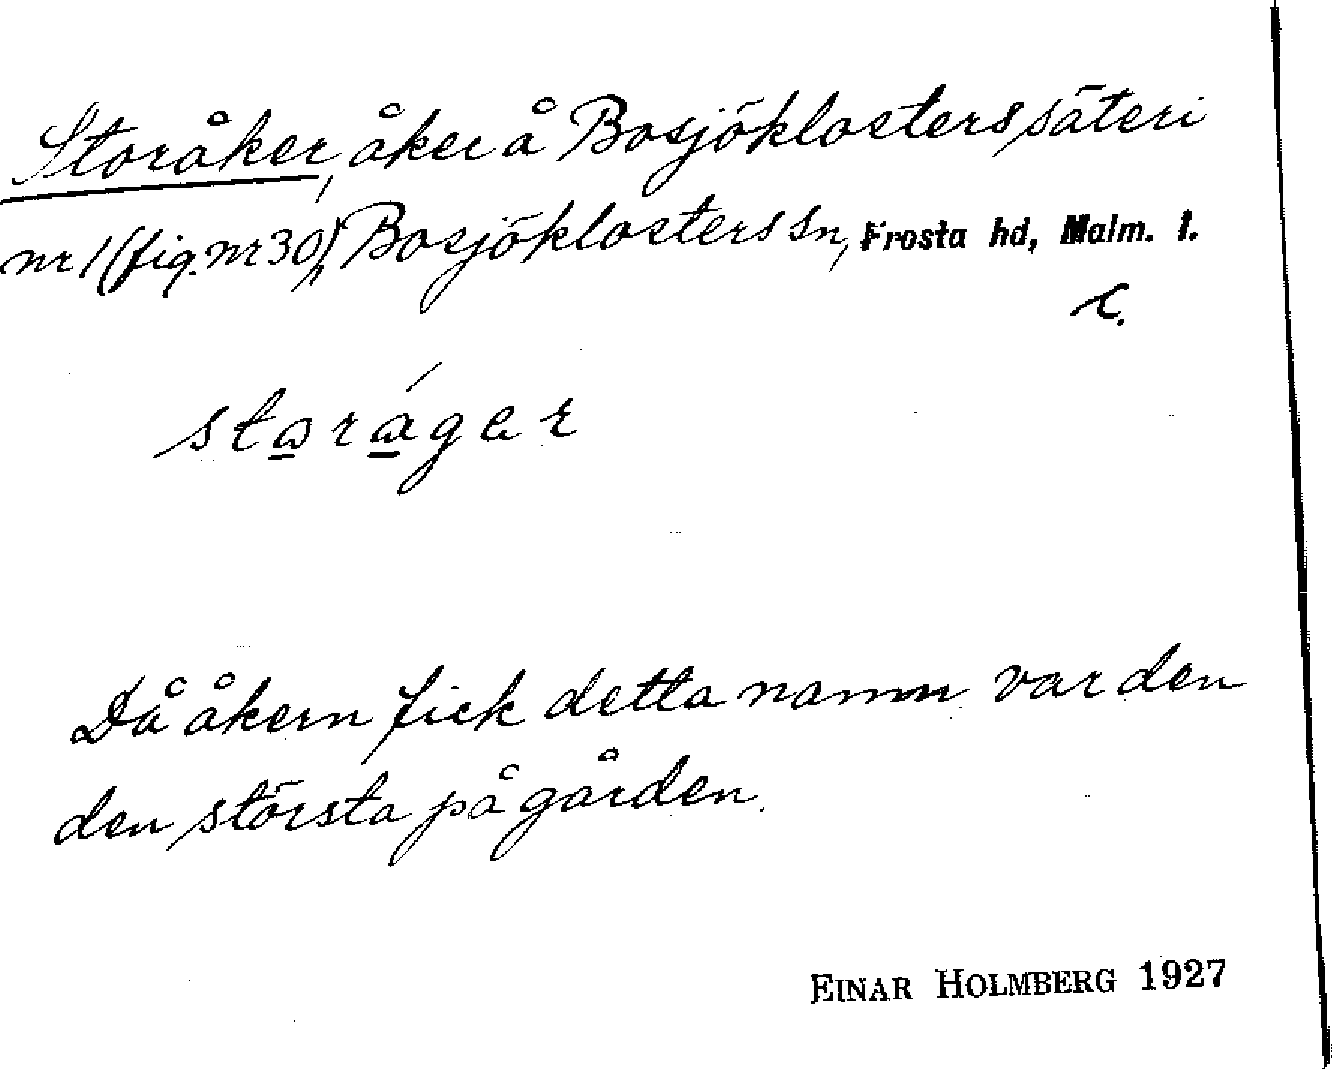 Storåker, åker å Bosjöklosters säteri
nr 1 (fig. nr 30), Bosjöklosters sn, Frosta hd, Malm. l.
c.
Då åkern fick detta namn var den
den största på gården.
EINAR HOLMBERG 1927